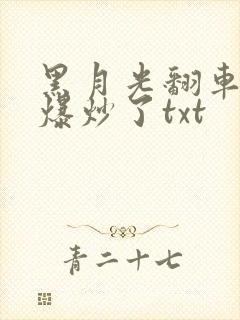 黑月光翻车
爆炒了txt
青二十七